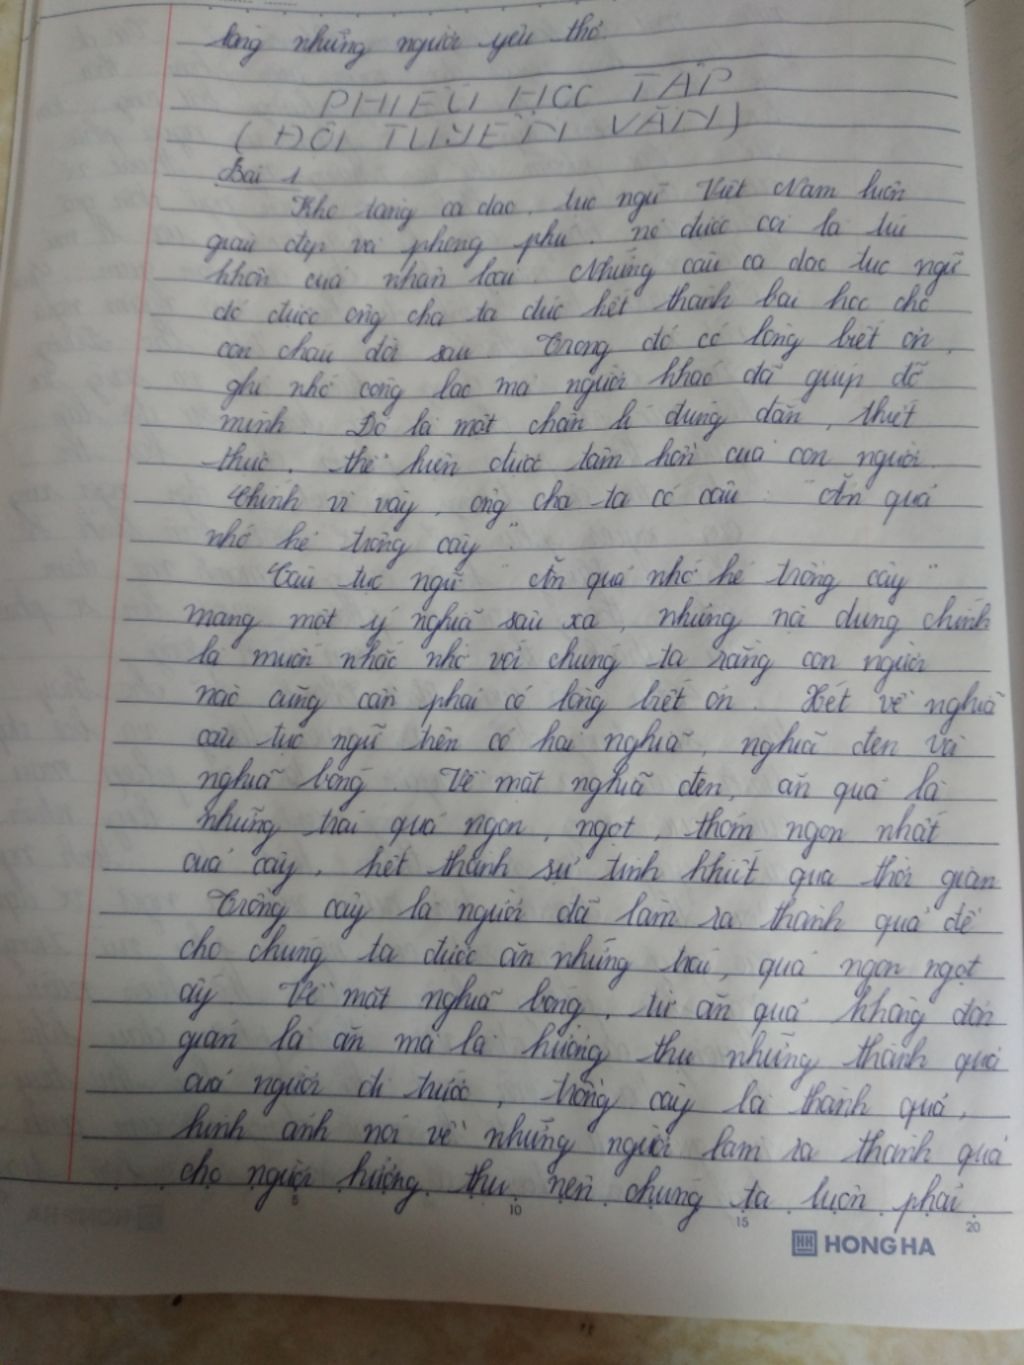 lòng những người yêu thơ.
PHIẾU HỌC TẬP
(ĐỘI TUYỂN VĂN)
Bài 1
Kho tàng ca dao, tục ngữ Việt Nam luôn
giàu đẹp và phong phú. nó được coi là túi
khôn của nhân loại. Những câu ca dao tục ngữ
đó được ông cha ta đúc kết thành bài học cho
con cháu đời sau. Trong đó có lòng biết ơn,
ghi nhớ công lao mà người khác đã giúp đỡ
mình. Đó là một chân lí đúng đắn, thiết
thực, thể hiện được tâm hồn của con người.
Chính vì vậy, ông cha ta có câu: "Ăn quả
nhớ kẻ trồng cây".
Câu tục ngữ "Ăn quả nhớ kẻ trồng cây"
mang một ý nghĩa sâu xa, nhưng nội dung chính
là muốn nhắc nhở với chúng ta rằng con người
nào cũng cần phải có lòng biết ơn. Xét về nghĩa
câu tục ngữ trên có hai nghĩa, nghĩa đen và
nghĩa bóng. Về mặt nghĩa đen, ăn quả là
những trái quả ngon, ngọt, thơm ngon nhất
của cây, kết thành sự tinh khiết qua thời gian
Trồng cây là người đã làm ra thành quả để
cho chúng ta được ăn những trái, quả ngon ngọt
ấy. Về mặt nghĩa bóng, từ ăn quả không đơn
giản là ăn mà là hưởng thụ những thành quả
của người đi trước, trồng cây là thành quả,
hình ảnh nói về những người làm ra thành quả
cho người hưởng thụ nên chúng ta luôn phải
5 10 15 20
HONG HA